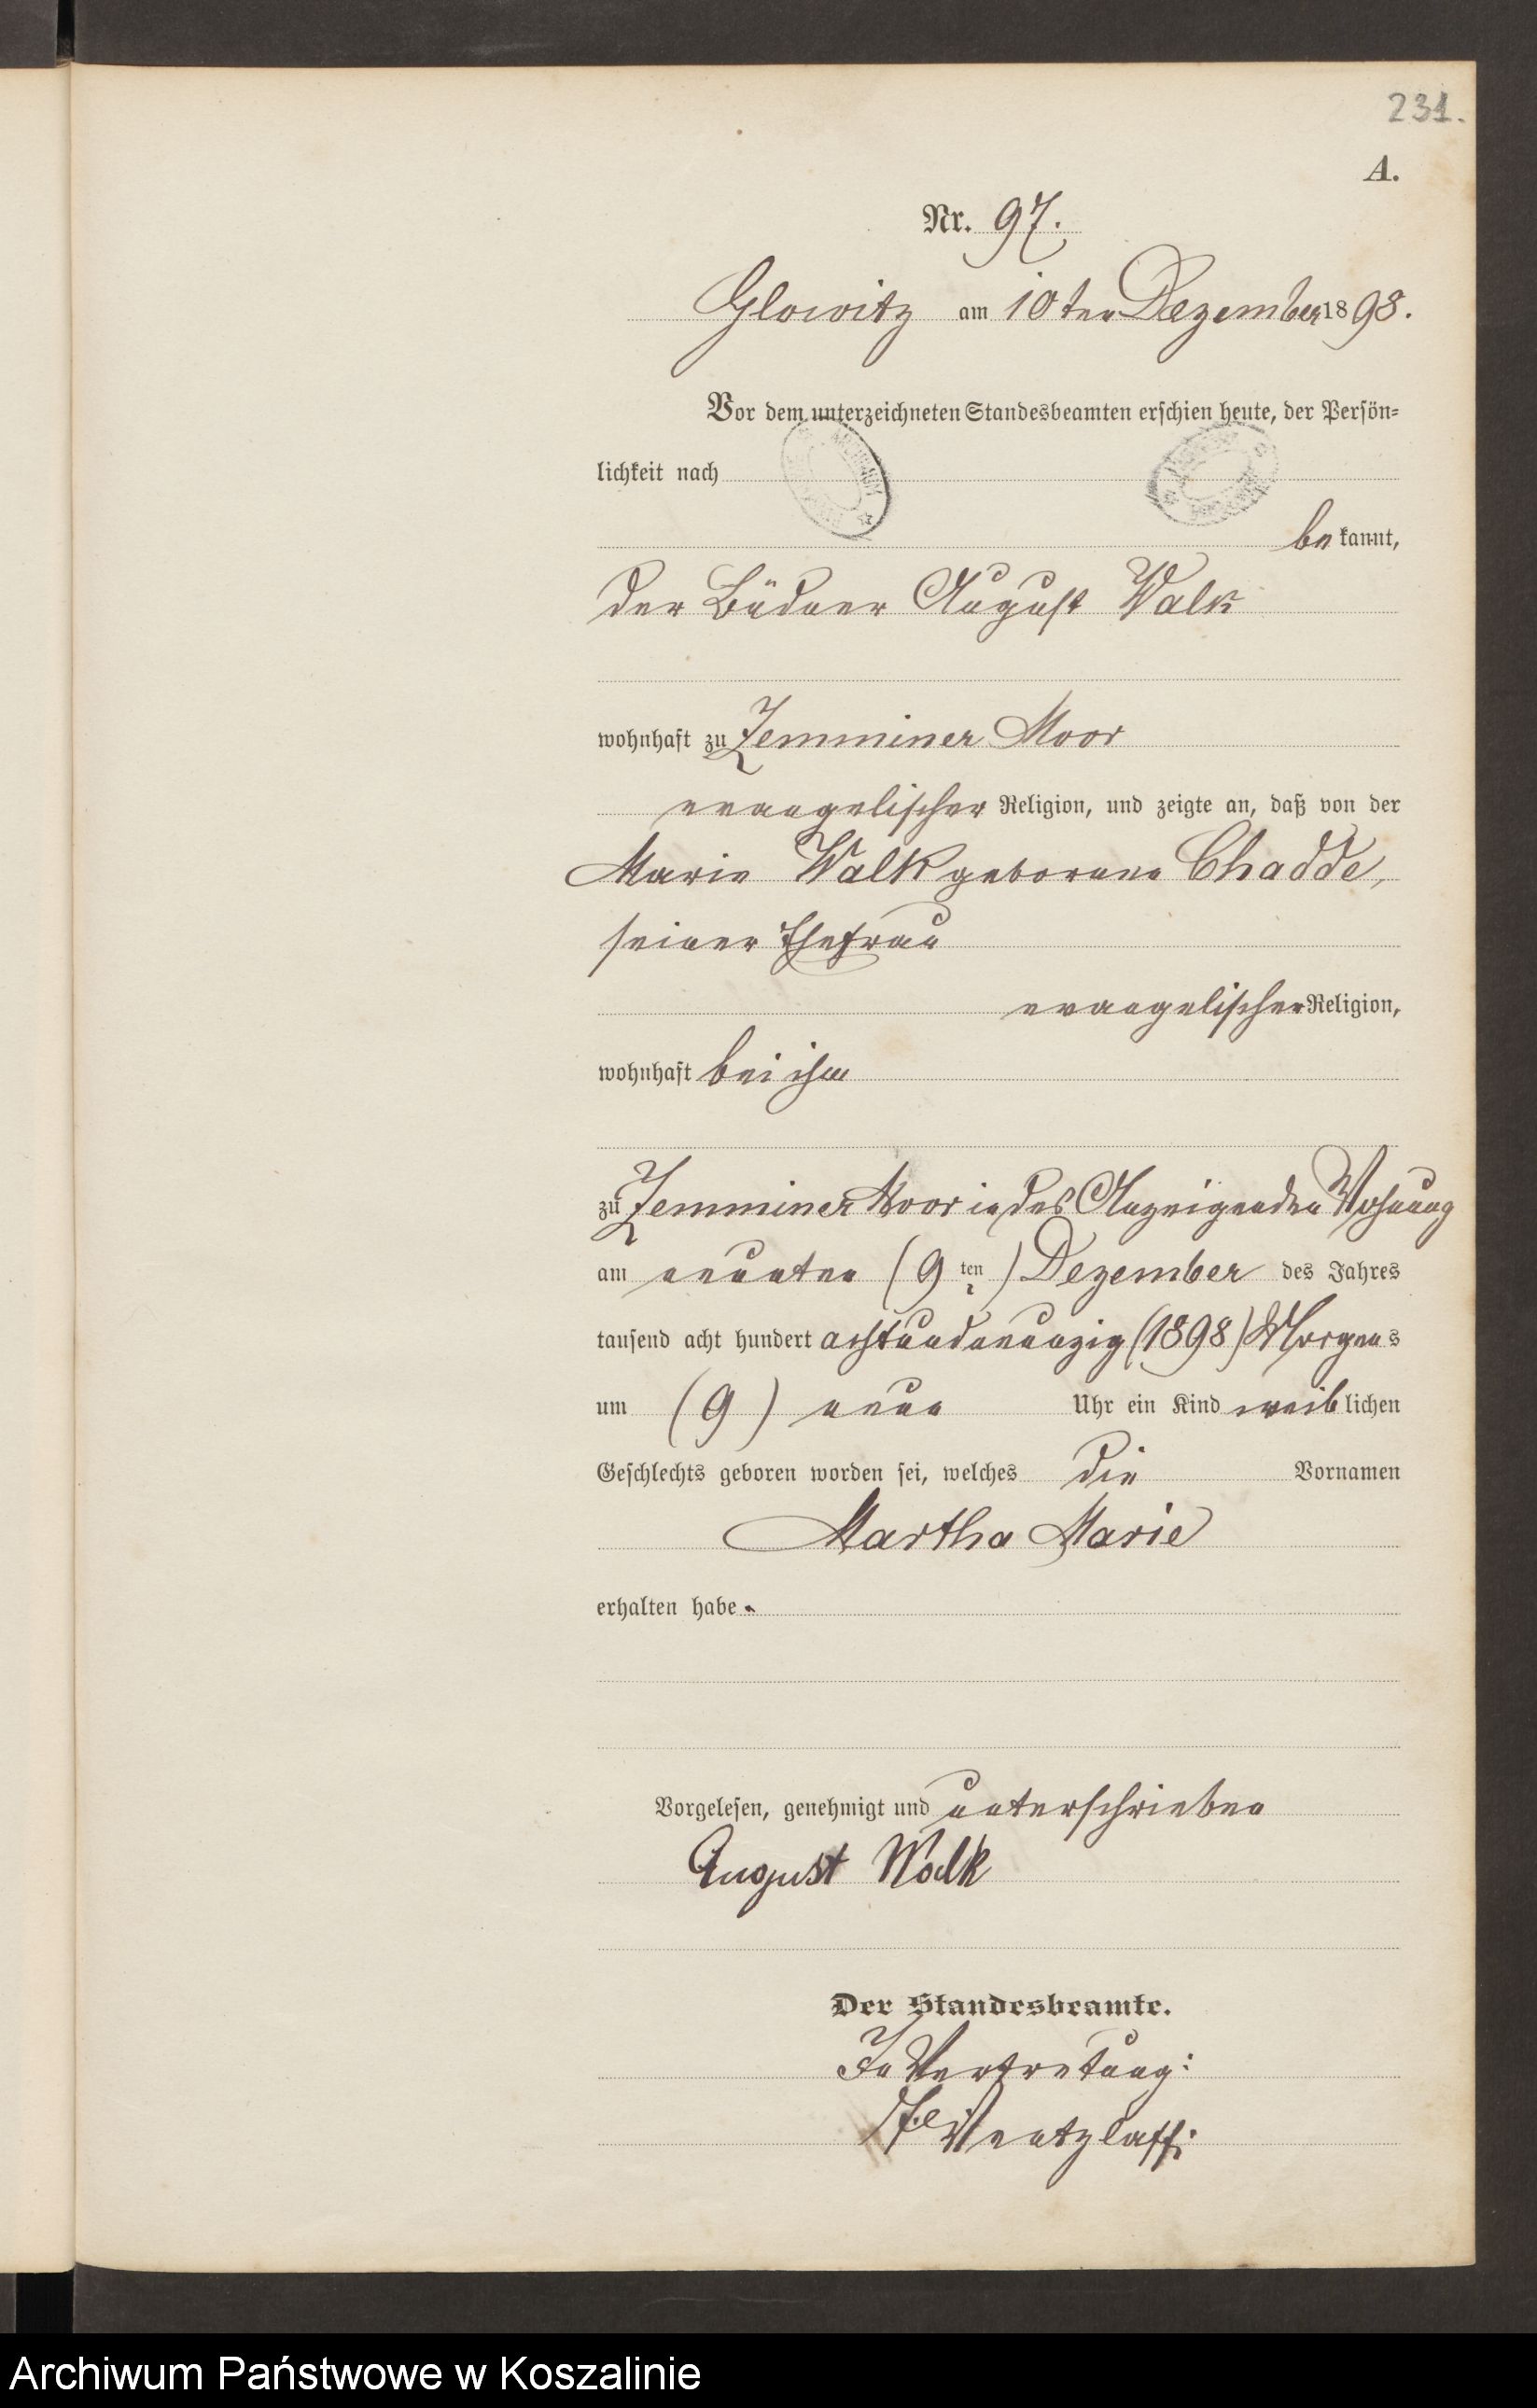 231.
A.
Nr. 97.
Glowitz am 10ten Dezember 1898.
Vor dem unterzeichneten Standesbeamten erschien heute, der Persön-
lichkeit nach
bekannt,
der Büdner August Walk
wohnhaft zu Zemminer Moor
evangelischer Religion, und zeigte an, daß von der
Marie Walk geborene Chadde,
seiner Ehefrau
evangelischer Religion,
wohnhaft bei ihm
zu Zemminer Moor in des Anzeigenden Wohnung
am neunten (9ten) Dezember des Jahres
tausend acht hundert achtundneunzig (1898) Morgens
um (9) neun Uhr ein Kind weiblichen
Geschlechts geboren worden sei, welches die Vornamen
Martha Marie
erhalten habe.
Vorgelesen, genehmigt und unterschrieben
August Walk
Der Standesbeamte.
In Vertretung:
Ventzlaff.
Archiwum Państwowe w Koszalinie